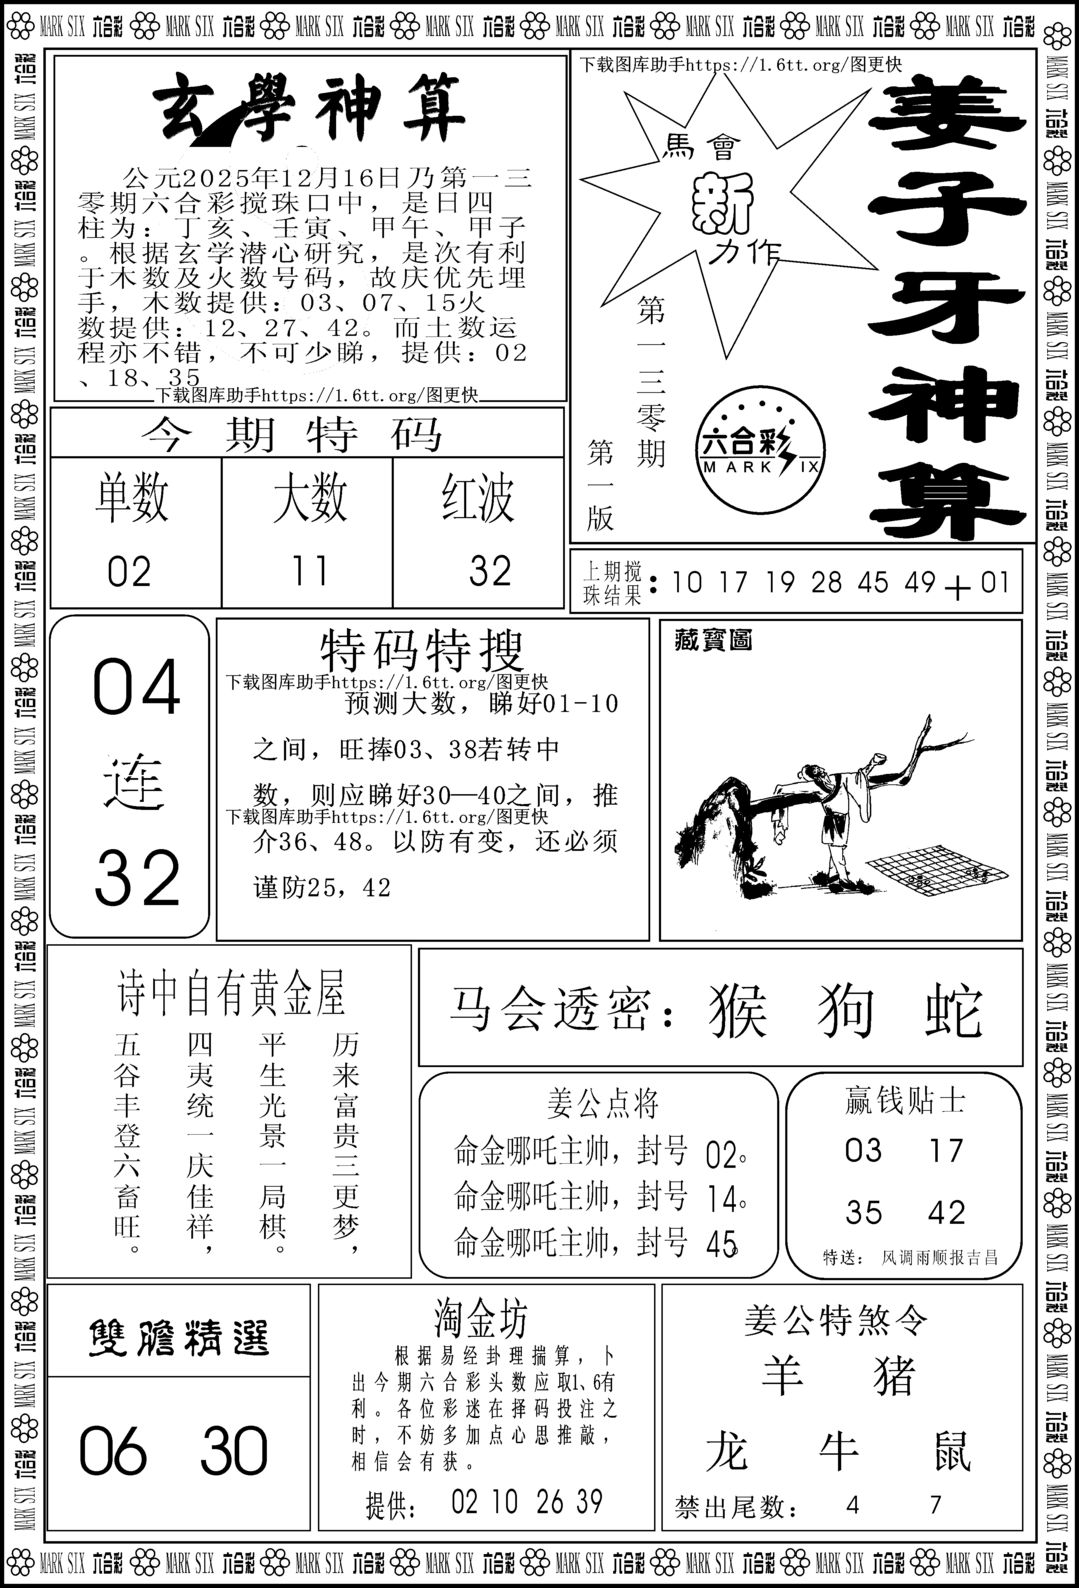 MARK SIX 六合彩 MARK SIX 六合彩 MARK SIX 六合彩 MARK SIX 六合彩 MARK SIX 六合彩 MARK SIX 六合彩 MARK SIX 六合彩 MARK SIX 六合彩
玄學神算
公元2025年12月16日乃第一三
零期六合彩搅珠口中，是日四
柱为：丁亥、壬寅、甲午、甲子
。根据玄学潜心研究，是次有利
于木数及火数号码，故庆优先埋
手，木数提供：03、07、15火
数提供：12、27、42。而土数运
程亦不错，不可少睇，提供：02
、18、35
下载图库助手https://1.6tt.org/图更快
下载图库助手https://1.6tt.org/图更快
馬會
新
力作
姜子牙神算
第一三零期
第一版
六合彩
MARK SIX
今期特码
单数 大数 红波
02 11 32
上期搅
珠结果：10 17 19 28 45 49＋01
04
连
32
特码特搜
下载图库助手https://1.6tt.org/图更快
预测大数，睇好01-10
之间，旺捧03、38若转中
数，则应睇好30—40之间，推
下载图库助手https://1.6tt.org/图更快
介36、48。以防有变，还必须
谨防25，42
藏寶圖
诗中自有黄金屋
历来富贵三更梦，
平生光景一局棋。
四夷统一庆佳祥，
五谷丰登六畜旺。
马会透密：猴 狗 蛇
姜公点将
命金哪吒主帅，封号 02。
命金哪吒主帅，封号 14。
命金哪吒主帅，封号 45。
赢钱贴士
03 17
35 42
特送： 风调雨顺报吉昌
雙膽精選
06 30
淘金坊
根据易经卦理揣算，卜
出今期六合彩头数应取1、6有
利。各位彩迷在择码投注之
时，不妨多加点心思推敲，
相信会有获。
提供： 02 10 26 39
姜公特煞令
羊 猪
龙 牛 鼠
禁出尾数： 4 7
MARK SIX 六合彩 MARK SIX 六合彩 MARK SIX 六合彩 MARK SIX 六合彩 MARK SIX 六合彩 MARK SIX 六合彩 MARK SIX 六合彩 MARK SIX 六合彩